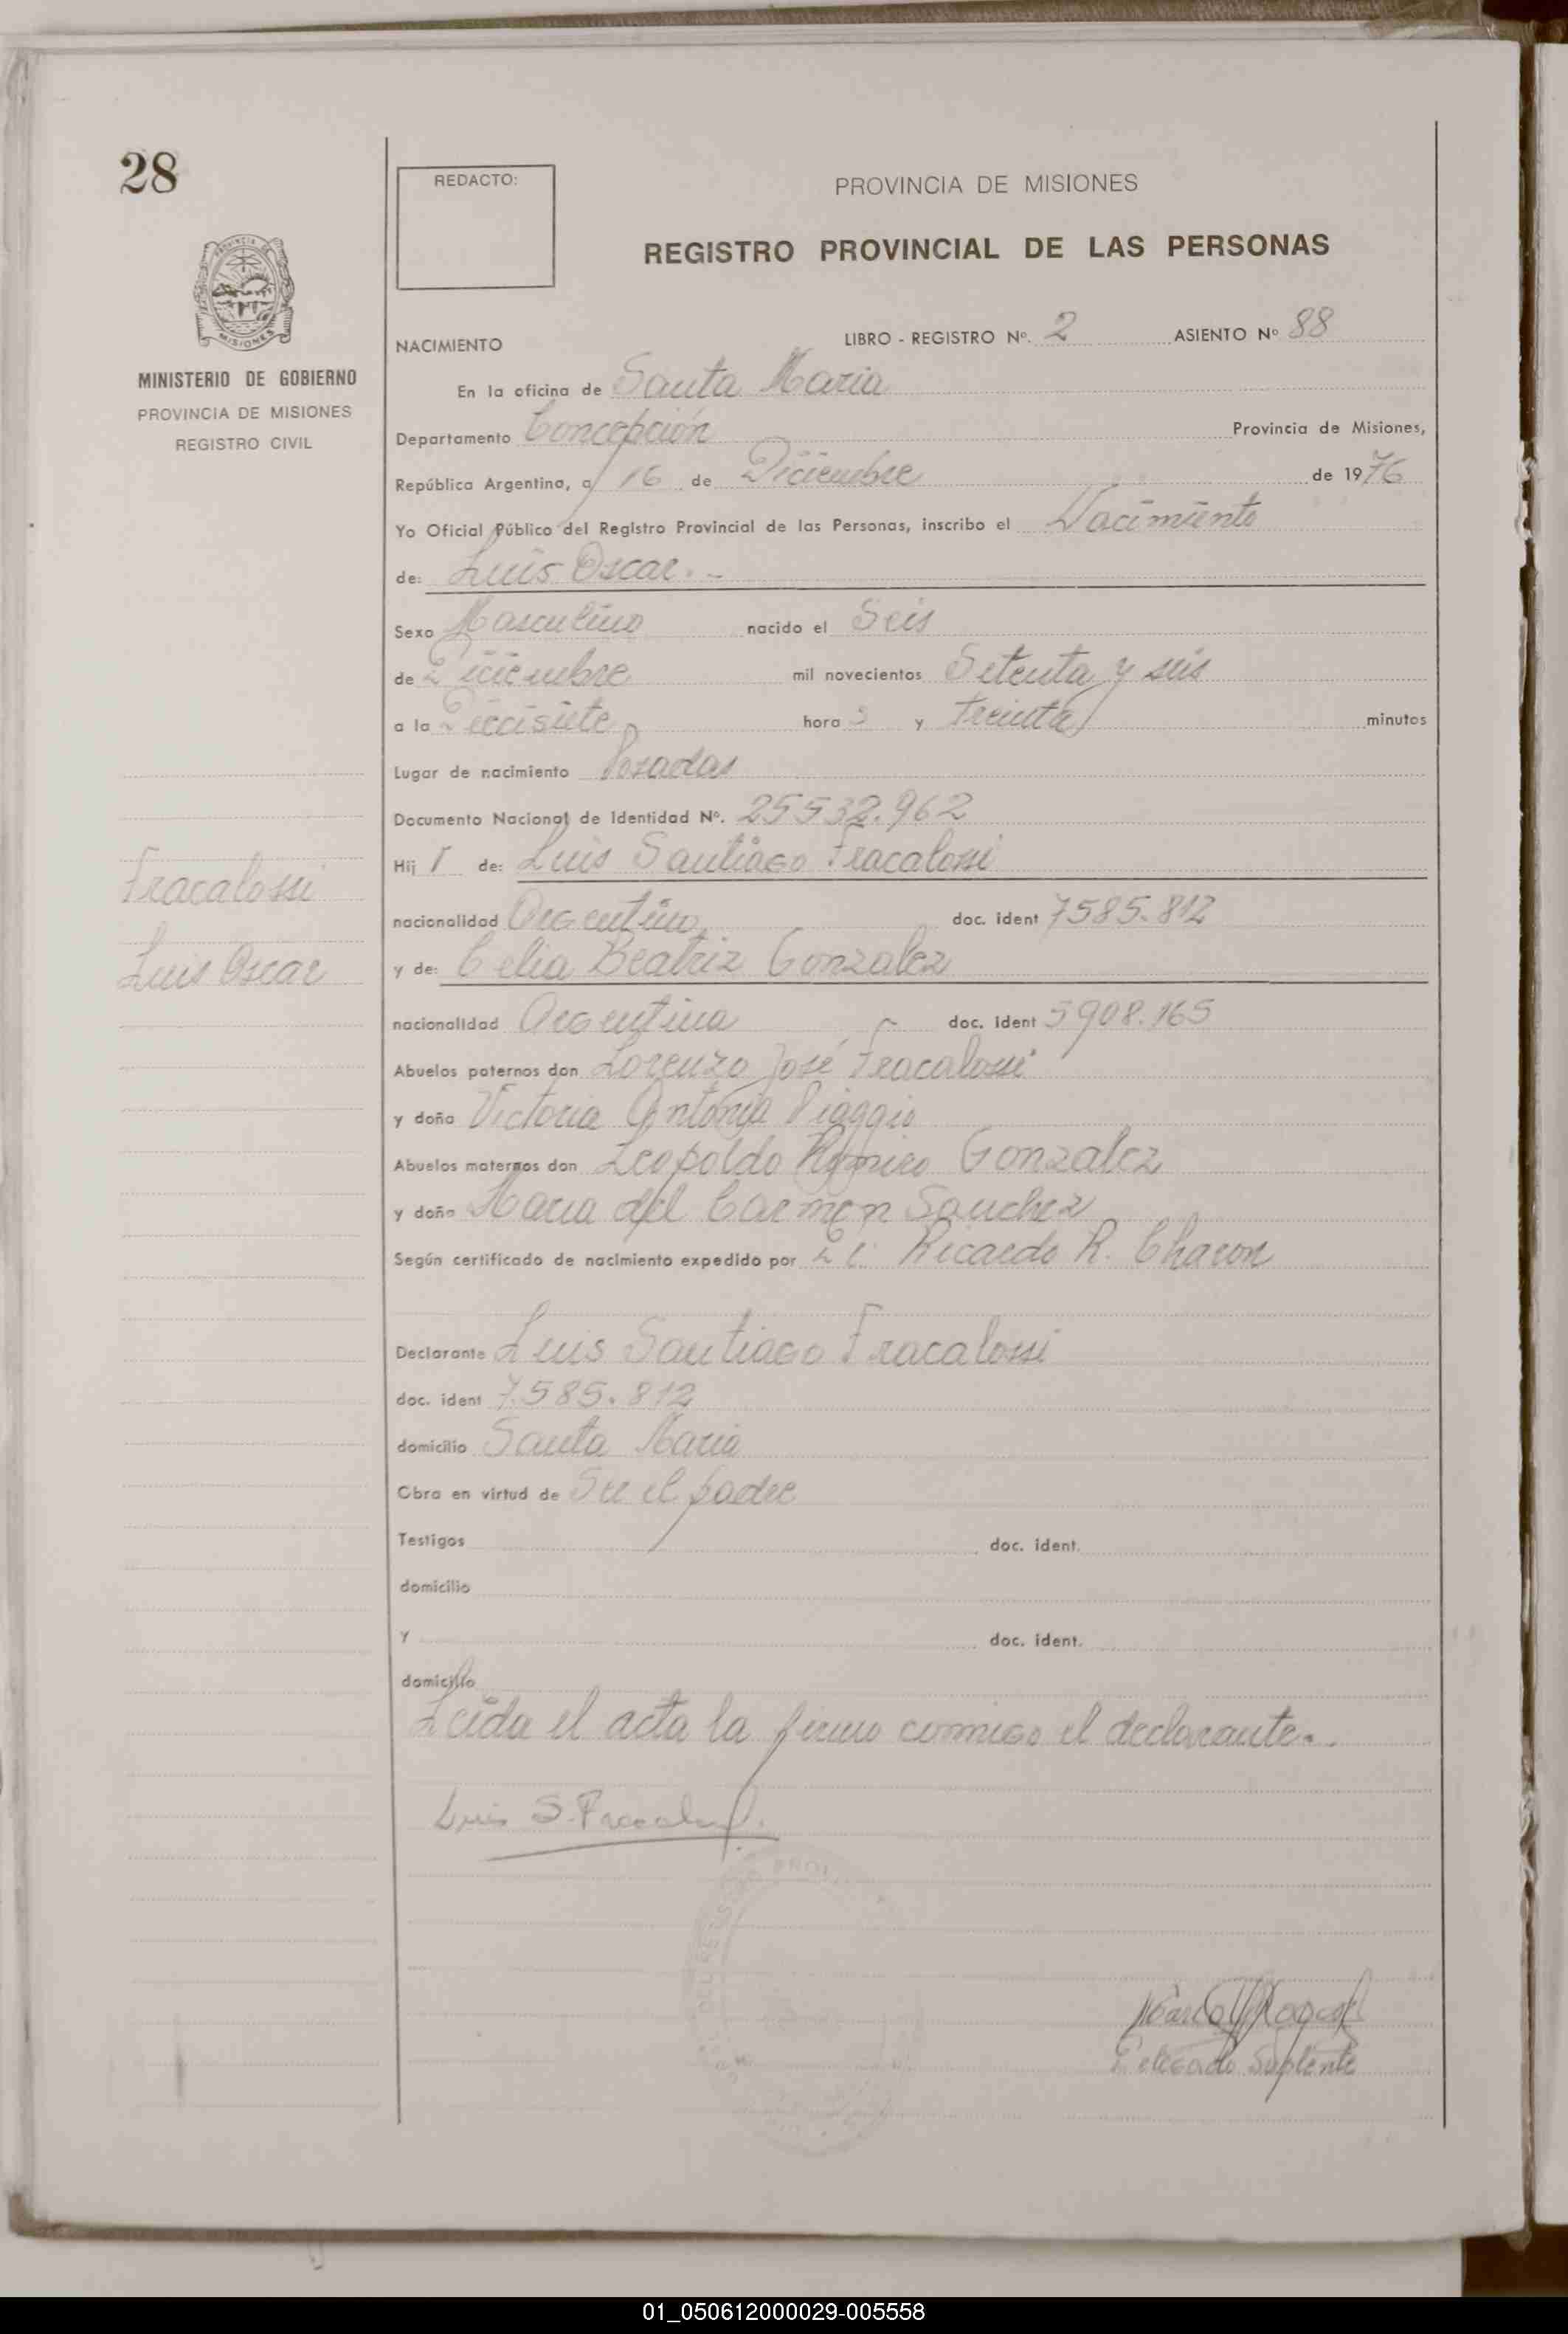 28
REDACTO:
PROVINCIA DE MISIONES
REGISTRO PROVINCIAL DE LAS PERSONAS
PROVINCIA DE
MISIONES
MINISTERIO DE GOBIERNO
PROVINCIA DE MISIONES
REGISTRO CIVIL
NACIMIENTO LIBRO - REGISTRO Nº. 2 ASIENTO Nº 88
En la oficina de Santa Maria
Departamento Concepción Provincia de Misiones,
República Argentina, a 16 de Diciembre de 1976
Yo Oficial Público del Registro Provincial de las Personas, inscribo el Nacimiento
de: Luis Oscar. -
Sexo Masculino nacido el Seis
de Diciembre mil novecientos Setenta y seis
a la Diecisiete hora s y treinta minutos
Lugar de nacimiento Posadas
Documento Nacional de Identidad Nº. 25532.962
Hij o de: Luis Santiago Fracalossi
nacionalidad Argentino doc. ident 7585.812
y de: Celia Beatriz Gonzalez
nacionalidad Argentina doc. ident 5908.165
Abuelos paternos don Lorenzo José Fracalossi
y doña Victoria Antonia Piaggio
Abuelos maternos don Leopoldo Ramiro Gonzalez
y doña Maria del Carmen Sanchez
Según certificado de nacimiento expedido por Ricardo R. Charon
Fracalossi
Luis Oscar
Declarante Luis Santiago Fracalossi
doc. ident 7.585.812
domicilio Santa Maria
Obra en virtud de Ser el padre
Testigos doc. ident.
domicilio
y doc. ident.
domicilio
Leida el acta la firmo conmigo el declarante..
Luis S.
Delegado Suplente
01_050612000029-005558